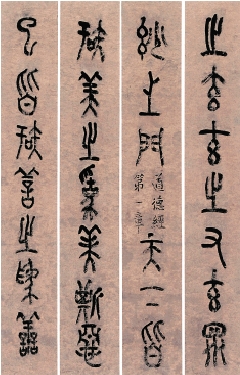 之玄玄之又玄眾
妙之門
道德經
第一章
天下皆
知美之為美斯惡
已皆知善之為善